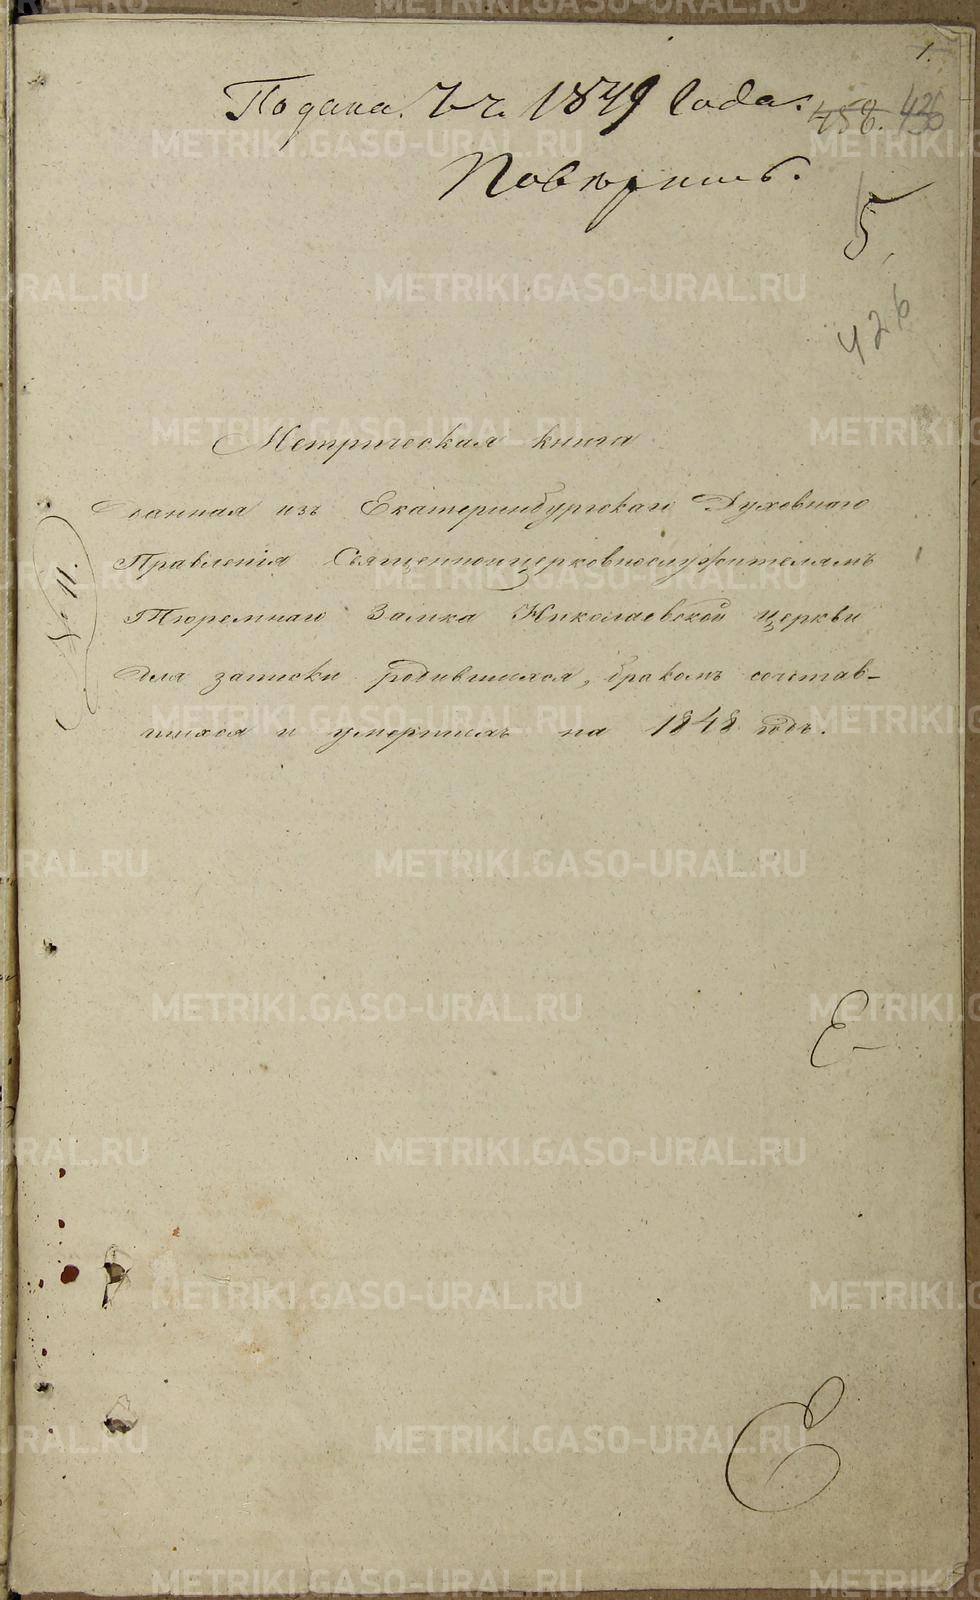 1.
Подана. 7 ч. 1849 Года.
458. 436
Повѣрить.
5,
426
Метрическая книга
данная изъ Екатеринбургскаго Духовнаго
Правленія Священноицерковнослужителямъ
Тюремнаго Замка Николаевской церкви
для записки родившихся, бракомъ сочетав-
шихся и умершихъ на 1848 годъ.
№ 11.
Е-
Е
METRIKI.GASO-URAL.RU